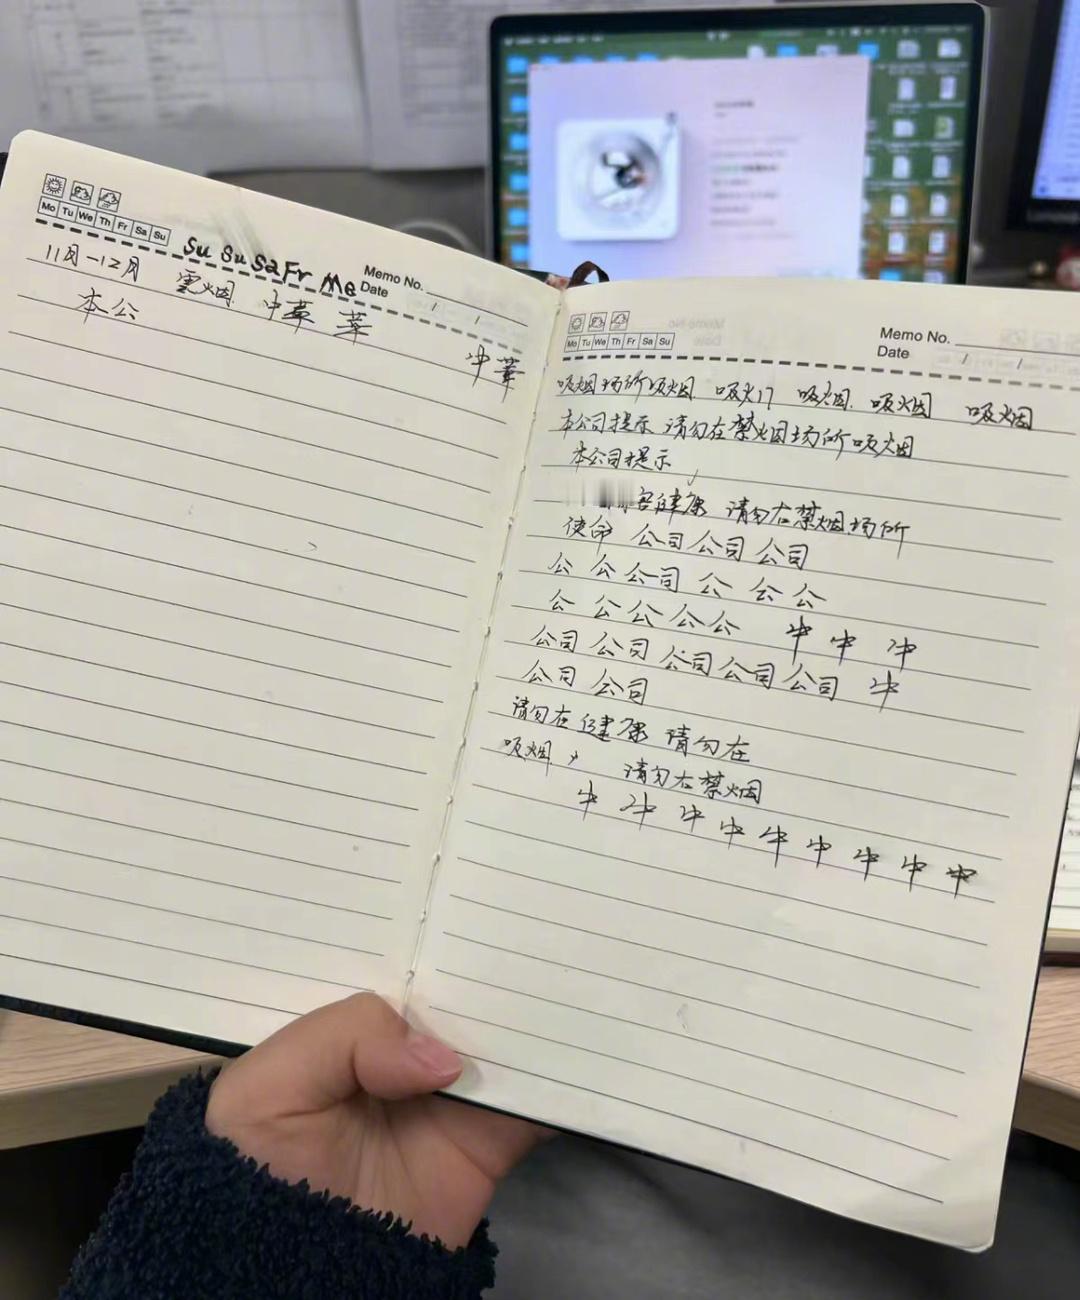 Mo Tu We Th Fr Sa Su
Su Su Sa Fr Me
Memo No.
Date / /
11月-12月 雲烟 中華 華
本公
中華
Mo Tu We Th Fr Sa Su
Memo No.
Date / /
吸烟场所吸烟 吸火门 吸烟 吸烟 吸烟
本公司提示 请勿在禁烟场所吸烟
本公司提示
害健康 请勿在禁烟场所
使命 公司 公司 公司
公 公 公司 公 公 公
公 公 公 公 公 中 中 中
公司 公司 公司 公司 公司 中
公司 公司
请勿在 健康 请勿在
吸烟 请勿在禁烟
中 中 中 中 中 中 中 中 中